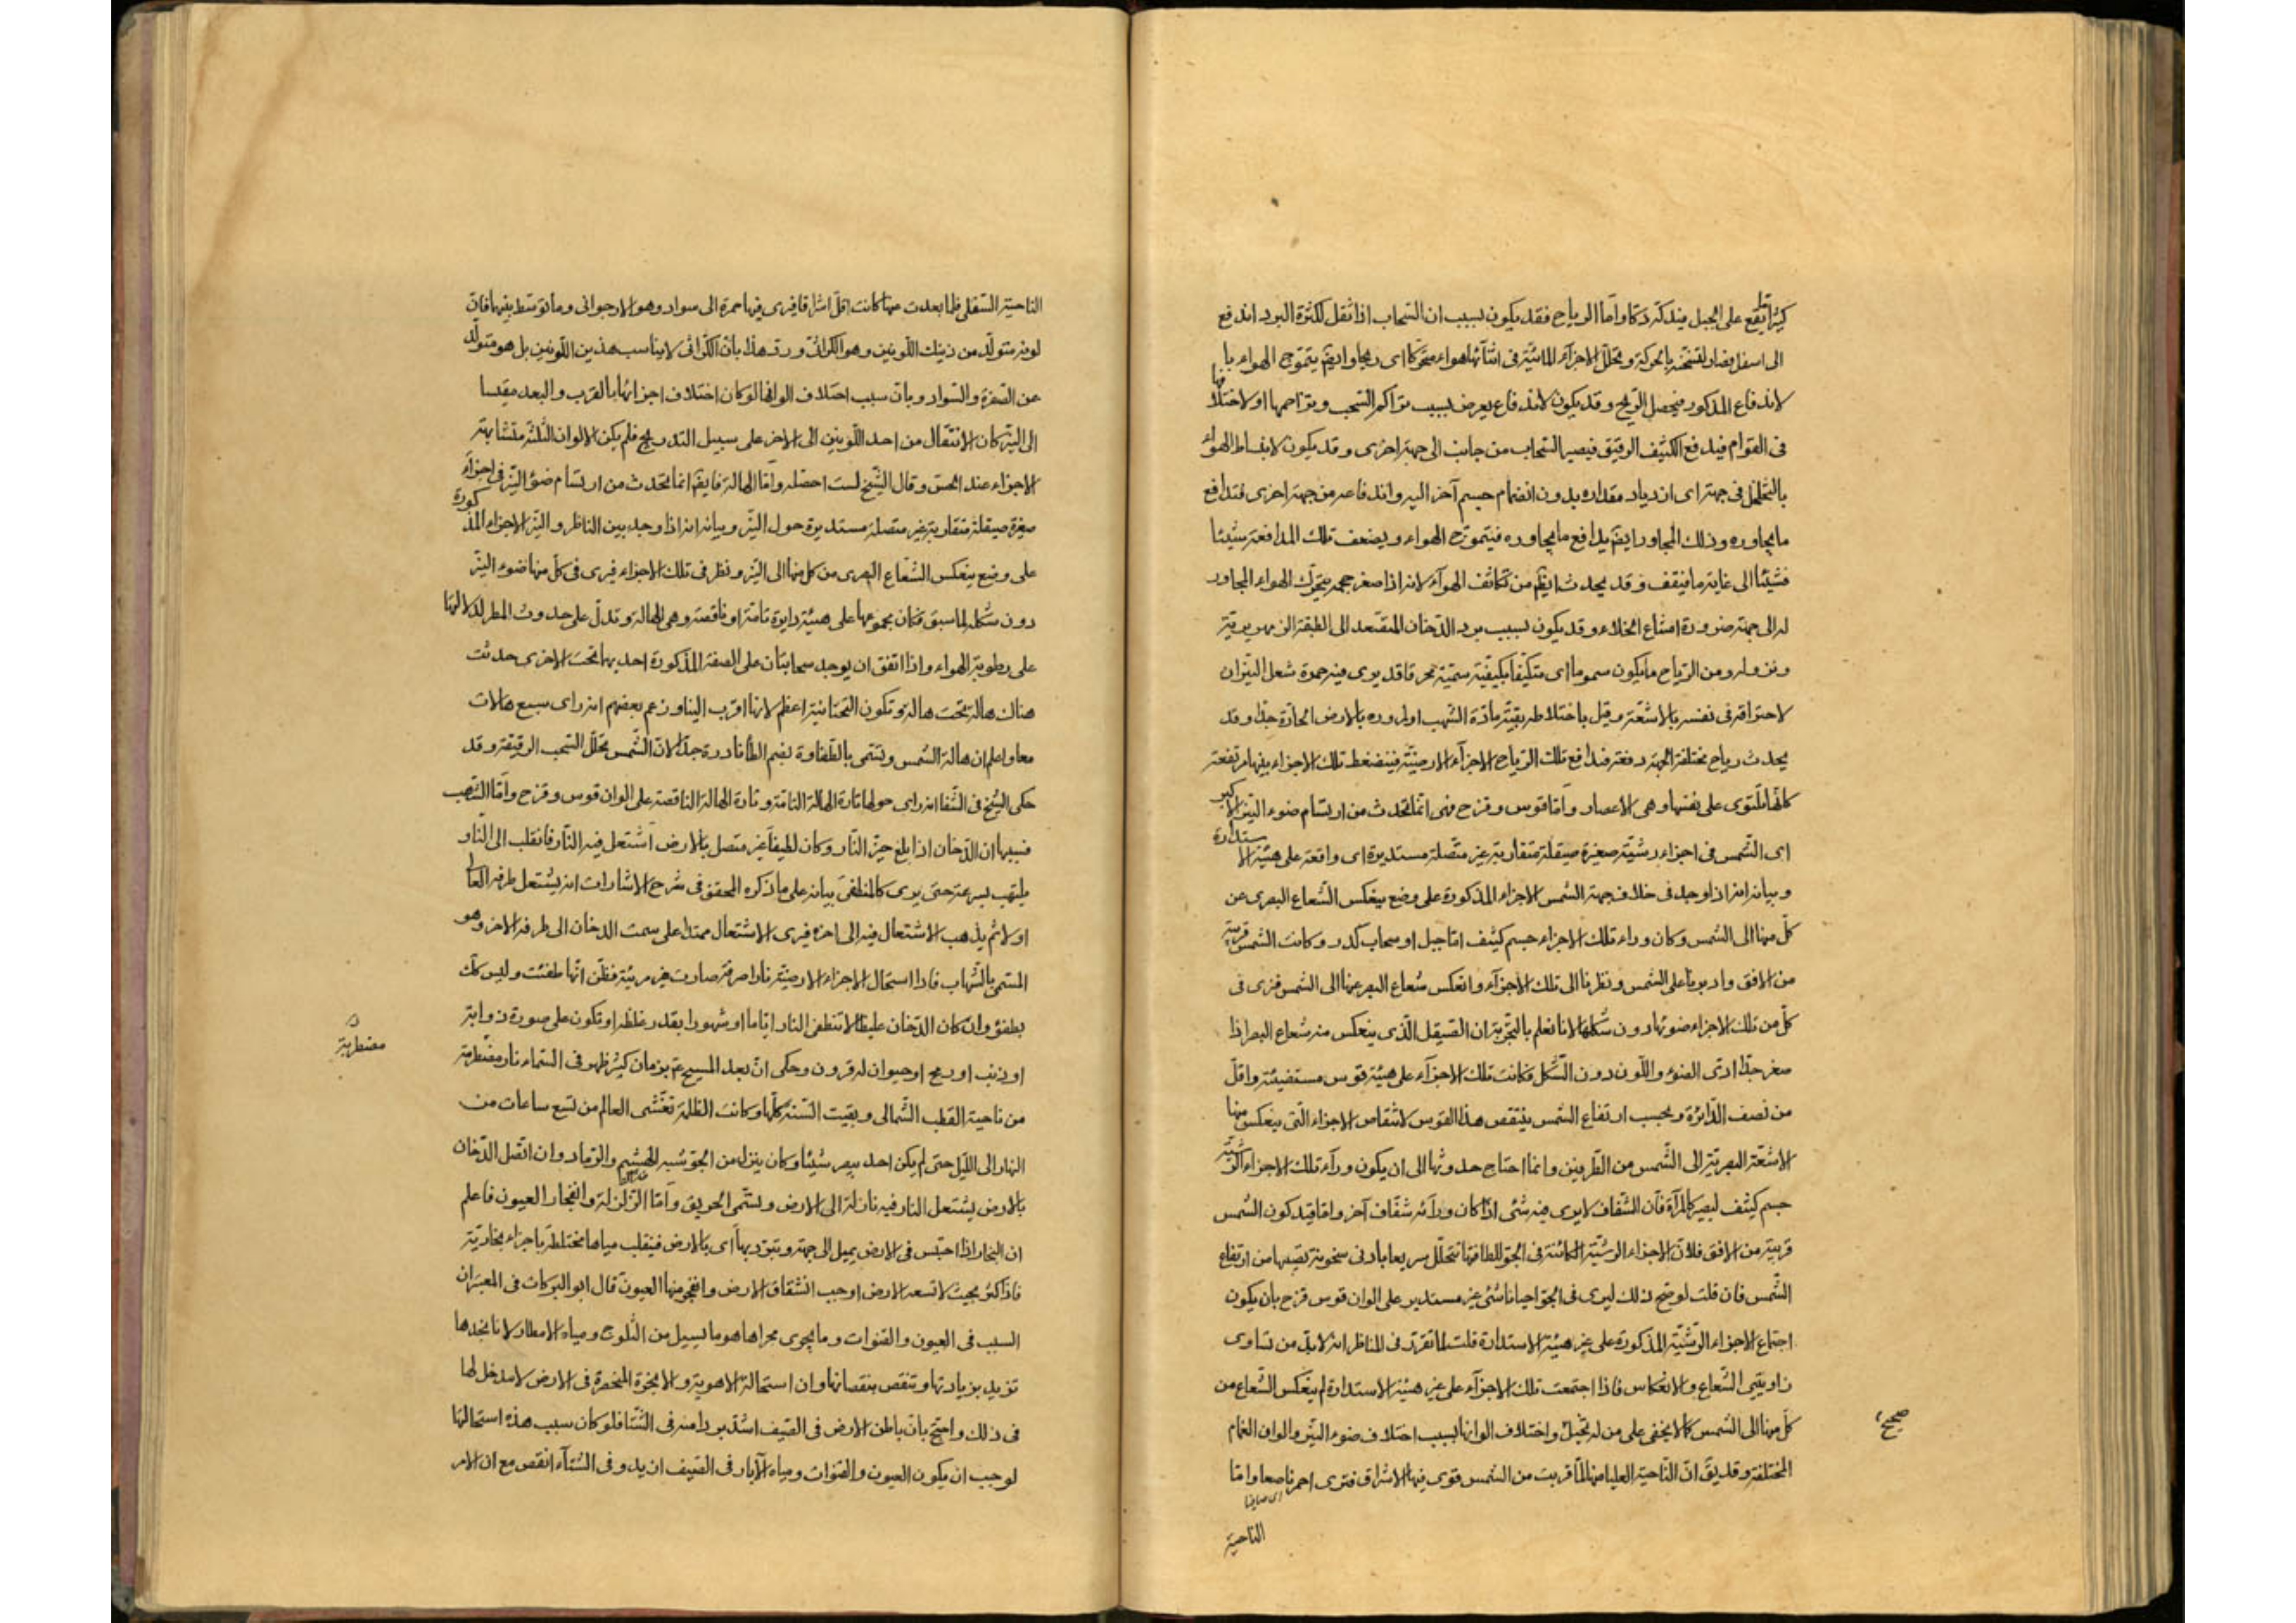 كثيرا ما يقع على الجبل فيندكّ دكّا وامّا الرياح فقد يكون بسبب ان السّحاب اذا ثقل لكثرة البرد اندفع
الى اسفل فصار لتسخّنه بالحركة وتحلّل الاجزآء المائيّة فى اثنآئها هواء متحرّكا اى ريحا وايضّ يتموّج الهواء با
لاندفاع المذكور فيحصل الرّيح وقد يكون لاندفاع يعرض بسبب تراكم السّحب وتزاحمها او لاختلافها
فى القوام فيدفع الكثيف الرقيق فيصير السّحاب من جانب الى جهة اخرى وقد يكون لانبساط الهواء
بالتخلخل فى جهة اى ازدياد مقداره بدون انضمام جسم آخر اليه واندفاعه من جهة اخرى فتدافع
ما يجاوره وذلك المجاور ايضّ يدافع ما يجاوره فيتموّج الهواء ويضعف تلك المدافعة شيئا
فشيئا الى غاية ما فيقف وقد يحدث ايضّ من تكاثف الهوآء لانه اذا صغر حجمه يتحرّك الهواء المجاور
له الى جهته ضرورة امتناع الخلاء وقد يكون بسبب برد الدّخان المتصعّد الى الطبقة الزمهريريّة
ونزوله ومن الرّياح ما يكون سموما اى متكيّفا بكيفيّة سمّيّة محرقا قد يرى فيه حمرة شعل النيّران
لاحتراقه فى نفسه بالاشعّة وقيل باختلاطه ببقيّة مادّة الشّهب او لمروره بالارض الحارّة جدّا وقد
يحدث رياح مختلفة الجهة دفعة فيدافع تلك الرّياح الاجزآء الارضيّة فينضغط تلك الاجزاء بينها مرتفعة
كانّها تلتوى على نفسها وهى الاعصار وامّا قوس وقزح فهى انّما تحدث من ارتسام ضوء النيّر الاكبر
اى الشّمس فى اجزاء رشيّة صغيرة صيقلة متقاربة غير متّصلة مستديرة اى واقعة على هيئة الاستدارة
وبيانه انه اذا وجد فى خلاف جهة الشّمس الاجزاء المذكورة على وضع ينعكس الشّعاع البصرى عن
كلّ منها الى الشّمس وكان وراء تلك الاجزاء جسم كثيف امّا جبل او سحاب كدر وكانت الشمس قريبة
من الافق وادبرنا على الشّمس ونظرنا الى تلك الاجزآء وانعكس شعاع البصر عنها الى الشّمس فنرى فى
كلّ من تلك الاجزاء ضوئها دون شكلها لانا نعلم بالتّجربة ان الصّيقل الّذى ينعكس منه شعاع البصر اذا
صغر جدّا ادّى الضوء واللّون دون الشّكل فكانت تلك الاجزآء على هيئة قوس مستضيئة واقلّ
من نصف الدّائرة وبحسب ارتفاع الشّمس ينتقص هذا القوس لانتقاص الاجزاء الّتى ينعكس منها
الاشعّة البصريّة الى الشّمس من الطّرفين وانما احتاج حدوثها الى ان يكون ورآء تلك الاجزاء الرّشيّة
جسم كثيف ليصير كالمرآة فان الشّفاف لا يرى فيه شئى اذا كان ورآئه شفّاف آخر وامّا قيد كون الشّمس
قريبة من الافق فلانّ الاجزاء الرشيّة الكائنة فى الجوّ للطافتها تتحلّل سريعا بادنى سخونة تصيبها من ارتفاع
الشّمس فان قلت لو صحّ ذلك ليرى فى الجوّ احيانا شئى غير مستدير على الوان قوس قزح بان يكون
اجتماع الاجزاء الرّشيّة المذكورة على غير هيئة الاستدارة قلت لما تقرّر فى المناظر انه لابدّ من تساوى
زاويتى الشّعاع والانعكاس فاذا اجتمعت تلك الاجزآء على غير هيئة الاستدارة لم ينعكس الشّعاع من
كلّ منها الى الشّمس كما لا يخفى على من له تخيّل واختلاف الوانها بسبب اختلاف ضوء النيّر والوان الغمام
صحيح
المختلفة وقد يقّ انّ النّاحية العليا منها لمّا قربت من الشّمس قوى فيها الاشراق فترى احمر ناصعا وامّا
اى صافيا
الناحية
الناحية السّفلى فلما بعدت عنها كانت اقلّ اشراقا فيرى فيها حمرة الى سواد وهو الارجوانى وما توسّط بينهما فانّ
لونه متولّد من ذينك اللّونين وهو الكرّاثى وردّ هذا بانّ الكرّاثى لا يناسب هذين اللّونين بل هو متولّد
عن الصّفرة والسّواد وبانّ سبب اختلاف الوانها لو كان اختلاف اجزائها بالقرب والبعد مقيسا
الى النيّر كان الانتقال من احد اللّونين الى الاخر على سبيل التدريج فلم يكن الالوان الثّلثة متشابهة
الاجزاء عند الحسّ وقال الشّيخ لست احصّله وامّا الهالة فايضّ انما تحدث من ارتسام ضوء النيّر فى اجزآء
صغيرة صيقلة متقاربة غير متصلة مستديرة حول النيّر وبيانه انه اذا وجد بين الناظر والنيّر الاجزاء المذكورة
على وضع ينعكس الشّعاع البصرى من كلّ منها الى النيّر ونظر فى تلك الاجزاء فيرى فى كلّ منها ضوء النيّر
دون شكله لما سبق فكان مجموعها على هيئة دايرة تامّة او ناقصة وهى الهالة وتدلّ على حدوث المطر لدلالتها
على رطوبة الهواء واذا اتفق ان يوجد سحابتان على الصفة المذكورة احديهما تحت الاخرى حدثت
هناك هالة تحت هالة وتكون التّحتانية اعظم لانها اقرب الينا وزعم بعضهم انه راى سبع هالات
معا واعلم ان هالة الشّمس وتسمّى بالطّفاوة بضم الطّا نادرة جدّا لانّ الشّمس تحلّل السّحب الرقيقة وقد
حكى الشّيخ فى الشّفا انه راى حولها تارة الهالة التامّة وتارة الهالة الناقصة على الوان قوس وقزح وامّا الشّهب
فسببها ان الدّخان اذا بلغ حيّز النّار وكان لطيفا غير متصل بالارض اشتعل فيه النّار فانقلب الى النّار و
يلتهب بسرعة حتى يرى كالمنطفى بيانه على ما ذكره المحقق فى شرح الاشارات انه يشتعل طرفه العالى
اولا ثم يذهب الاشتعال فيه الى آخره فيرى الاشتعال ممتدا على سمت الدخان الى طرفه الاخر وهو
المسمّى بالشّهاب فاذا استحال الاجزاء الارضيّة نارا صرفة صارت غير مرئيّة فظنّ انّها طفئت وليس كك
بطفؤ وان كان الدّخان غليظا لا تنطفى النار ايّاما او شهورا بقدر غلظه او تكون على صورة ذوابة
او ذنب او رمح او حيوان له قرون وحكى انّ بعد المسيح ع بزمان كثير ظهر فى السّماء نار مضطرمة
مضطربة
من ناحية القطب الشّمالى وبقيت السّنة كلّها وكانت الظلمة تغشى العالم من تسع ساعات من
النهار الى اللّيل حتى لم يكن احد يبصر شيئا وكان ينزل من الجوّ شبيه الهشيم والرّماد وان اتّصل الدّخان
بالارض يشتعل النار فيه نازلة الى الارض ويسمّى الحريق وامّا الزّلزلة وانفجار العيون فاعلم
ان البخار اذا احتبس فى الارض يميل الى جهة ويتبرّد بها اى بالارض فينقلب مياها مختلطة باجزاء بخارية
فاذا كثر بحيث لا تسعه الارض اوجب انشقاق الارض وانفجر منها العيون قال ابو البركات فى المعتبر ان
السبب فى العيون والقنوات وما يجرى مجراها هو ما يسيل من الثلوج ومياه الامطار لانا نجدها
تزيد بزيادتها وتنقص بنقصانها وان استحالة الاهوية والابخرة المنحصرة فى الارض لا مدخل لها
فى ذلك واحتجّ بانّ باطن الارض فى الصّيف اشدّ بردا منه فى الشّتا فلو كان سبب هذه استحالتها
لوجب ان يكون العيون والقنوات ومياه الآبار فى الصّيف ازيد وفى الشّتآء انقص مع ان الامر